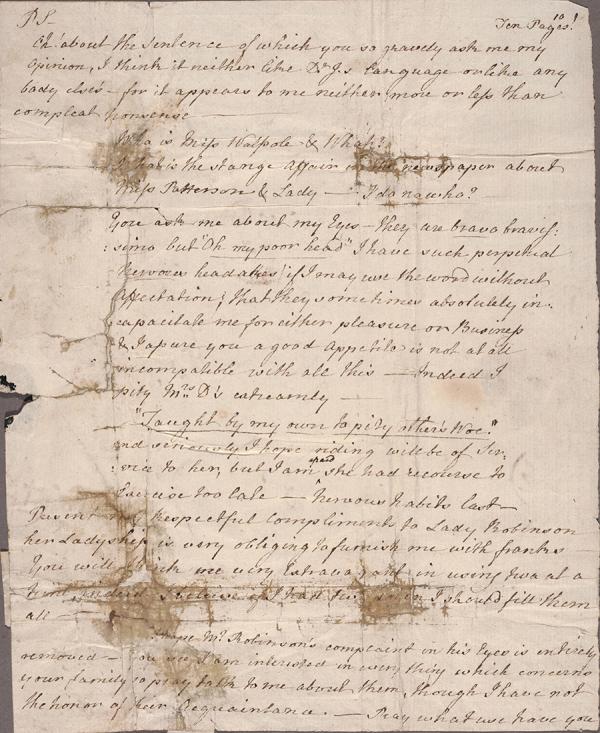 PS Ten Pages! 10
Oh! about the Sentence of which you so gravely ask me my
opinion, I think it neither like Dr J.s Language or like any
body else's - for it appears to me neither more or less than
compleat nonsense
Who is Miss Walpole & What?
What is the stange affair in the newspaper about
Miss Patterson & Lady — I do na wha?
You ask me about my Eyes - they are brava bravis:
:sima but "Oh my poor head" I have such perpetual
Nervous headaches (if I may use the word without
affectation) that they sometimes absolutely in:
:capacitate me for either pleasure or Business
& I assure you a good appetite is not at all
incompatible with all this — Indeed I
pity Mrs D's extreamly —
"Taught by my own to pity other's Woe."
and seriously I hope riding will be of Ser:
:vice to her, but I am afraid she had recourse to
Exercise too late — Nervous habits last
Present my respectful compliments to Lady Robinson
her Ladyship is very obliging to furnish me with franks
You will think me very Extravagant in using two at a
time Indeed I should fill them
all —
I hope Mr Robinson's complaint in his Eyes is entirely
removed — you see I am interested in every thing which concerns
your family so pray talk to me about them, though I have not
the honor of their Acquaintance. — Pray what use have you